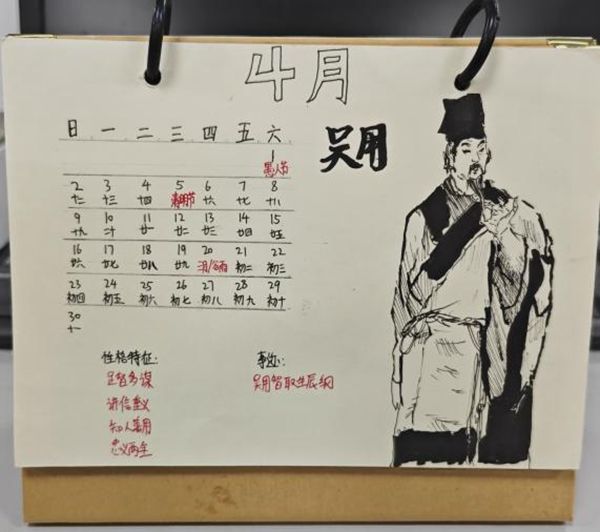 4月
吴用
日 一 二 三 四 五 六
1
愚人节
2 3 4 5 6 7 8
十二 十三 十四 清明节 十六 十七 十八
9 10 11 12 13 14 15
十九 二十 廿一 廿二 廿三 廿四 廿五
16 17 18 19 20 21 22
廿六 廿七 廿八 廿九 谷雨 初二 初三
23 24 25 26 27 28 29
初四 初五 初六 初七 初八 初九 初十
30
十一
性格特征:
足智多谋
讲信重义
知人善用
忠义两全
事迹:
吴用智取生辰纲